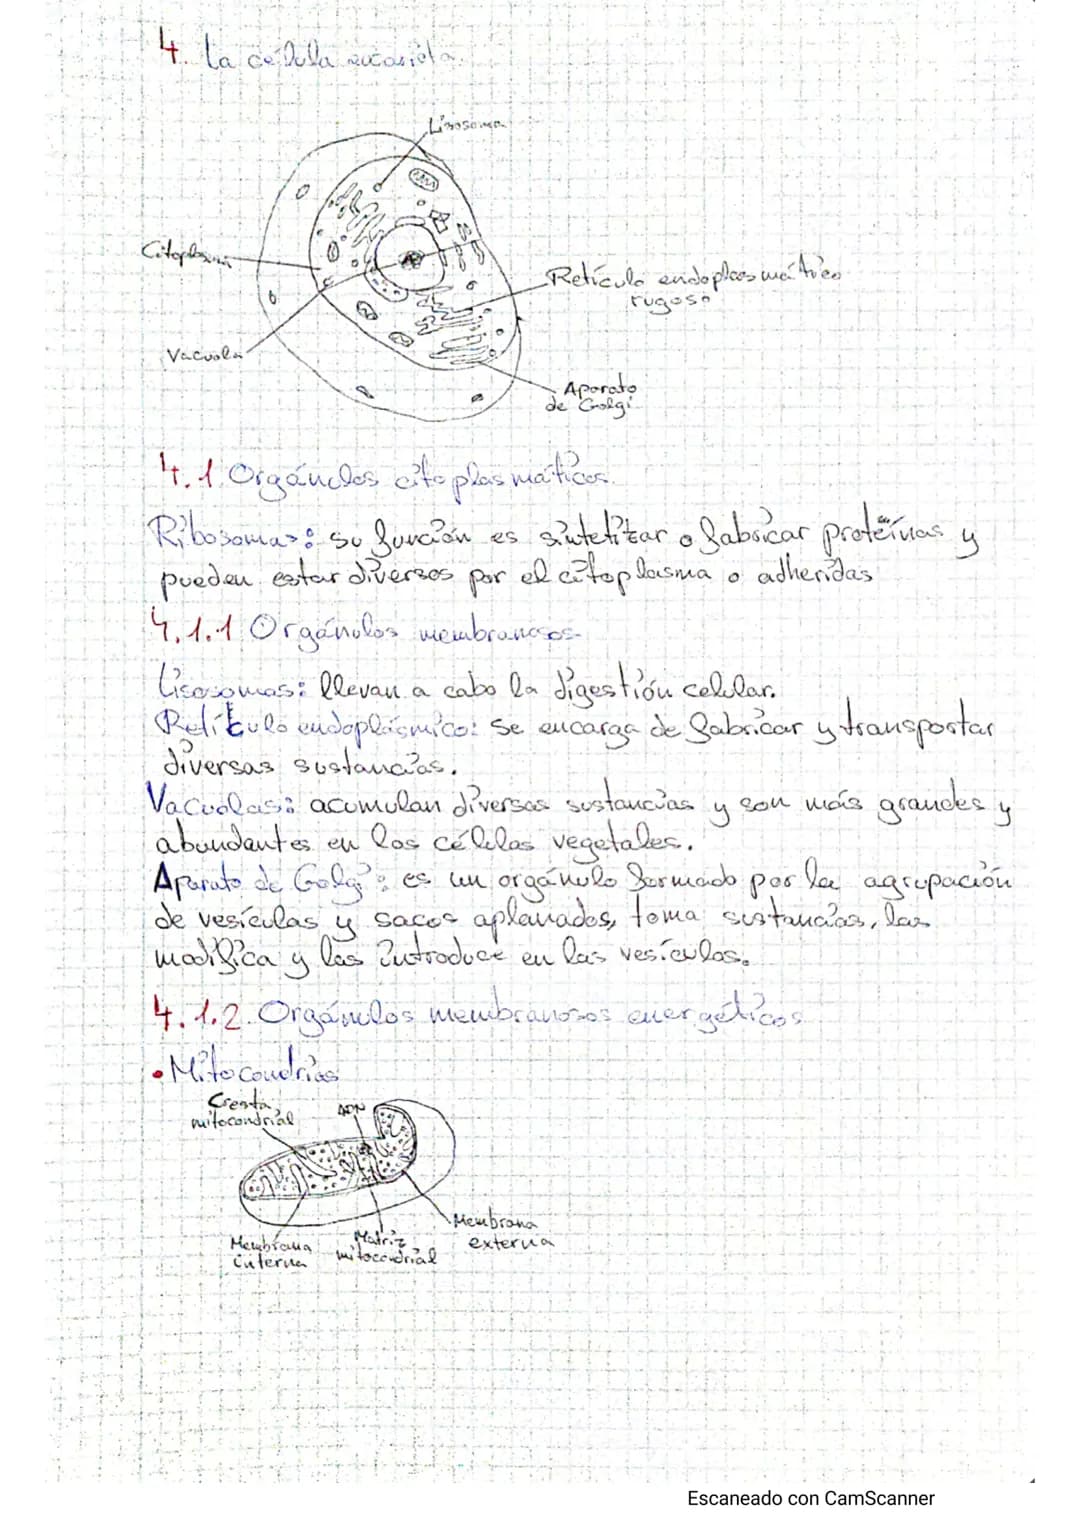 4. La célula eucariota.
Lisosoma
Citoplasma
Retículo endoplasmático
rugoso
Vacuola
Aparato
de Golgi
4.1 Orgánulos citoplasmáticos.
Ribosomas: su función es sintetizar o fabricar proteínas y
pueden estar diversos por el citoplasma o adheridas
4.1.1 Orgánulos membranosos.
Lisosomas: llevan a cabo la digestión celular.
Retículo endoplásmico: se encarga de fabricar y transportar
diversas sustancias.
Vacuolas: acumulan diversas sustancias y son más grandes y
abundantes en las célelas vegetales.
Aparato de Golgi: es un orgánulo formado por la agrupación
de vesículas y sacos aplanados, toma sustancias, las
modifica y las introduce en las vesículas.
4.1.2. Orgánulos membranosos energéticos
• Mitocondrias
Cresta
mitocondrial
ADN
Membrana
externa
Matriz
mitocondrial
Membrana
interna
Escaneado con CamScanner